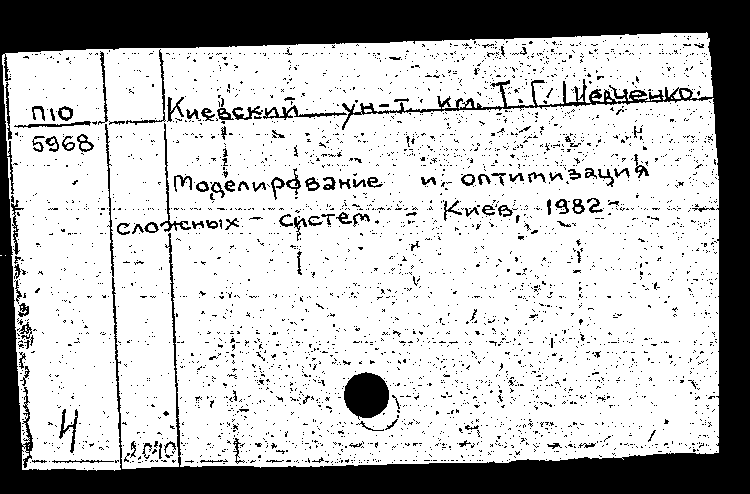 П10
5968
Киевский ун-т им. Т.Г. Шевченко.
Моделирование и оптимизация
сложных систем. - Киев, 1982-
4
2.040